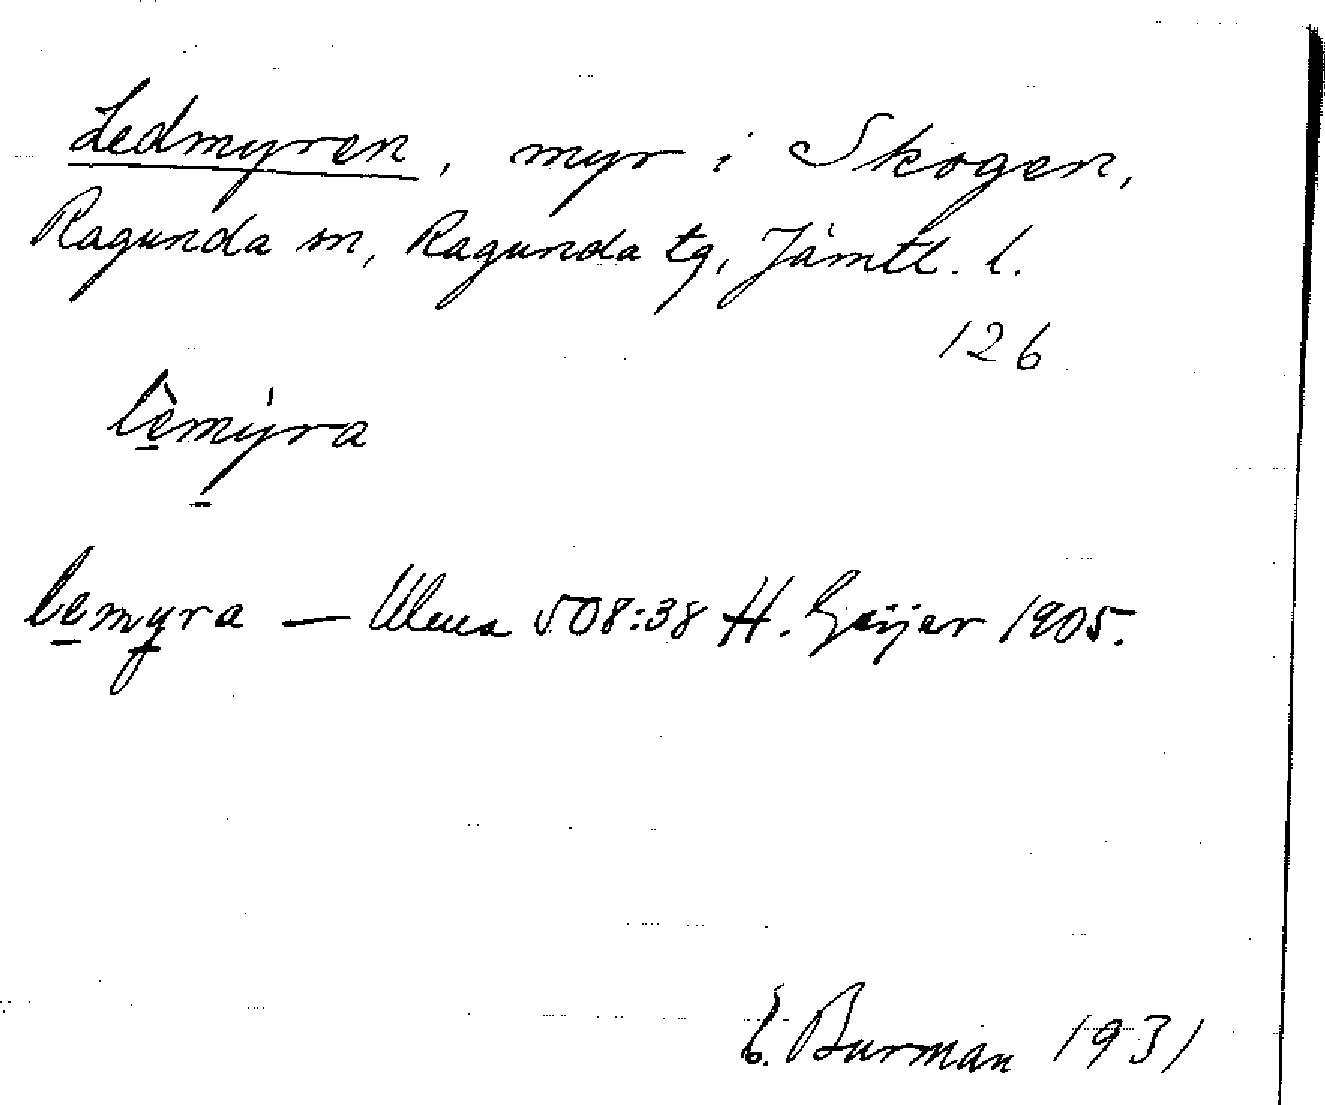 Ledmyren, myr i Skogen,
Ragunda sn, Ragunda tg, Jämtl. l.
126
lèmýra
lemyra — Ulma 508:38 H. Geijer 1905.
E. Burman 1931